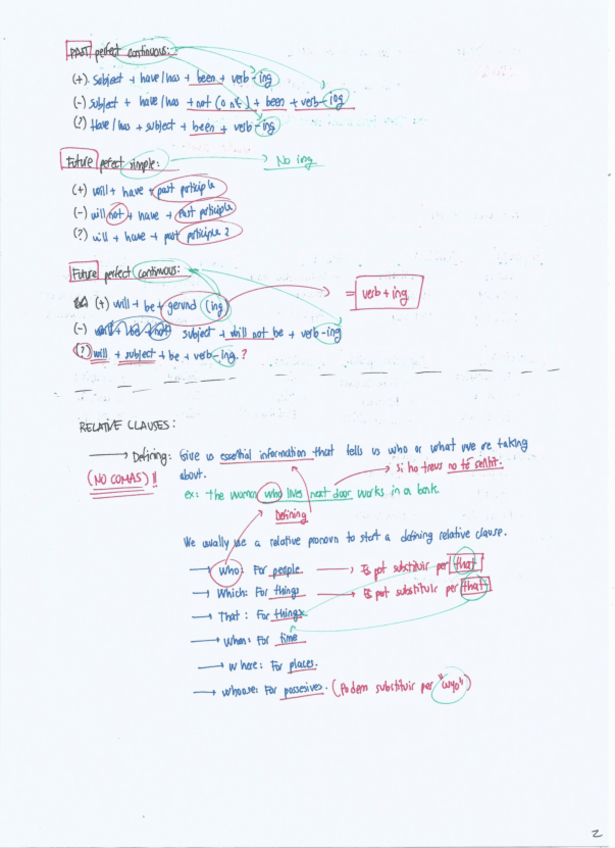 PAST perfect continuous:
(+). Subject + have/has + been + verb-ing
(-) Subject + have/has + not (o n't) + been + verb-ing
(?) Have/has + subject + been + verb-ing
Future perfect simple: No ing
(+) will + have + past participle
(-) will not + have + past participle
(?) will + have + past participle?
Future perfect continuous:
(+) will + be + gerund (ing) = verb + ing
(-) subject + will not be + verb-ing
(?) will + subject + be + verb-ing.?
RELATIVE CLAUSES:
Defining: Give us essential information that tells us who or what we are taking
(NO COMAS)!! about. Si ho treus no té sentit.
ex: the woman who lives next door works in a bank.
Defining
We usually use a relative pronoun to start a defining relative clause.
Who: For people. Es pot substituir per that
Which: For things Es pot substituir per that
That: For things
When: For time
Where: For places.
Whoose: For possesives. (Podem substituir per "wyo")
2